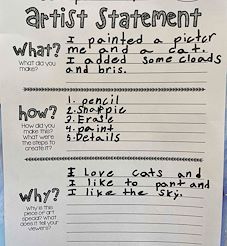 artist Statement
What?
What did you make?
I painted a pictcr
me and a cat.
I added some cloads
and bris.
how?
How did you make this?
What were the steps to create it?
1. pencil
2. Sharpie
3. Erase
4. paint
5. Details
Why?
Why is this piece of art special? What does it tell your viewers?
I Love cats and
I like to pant and
I like the sky.